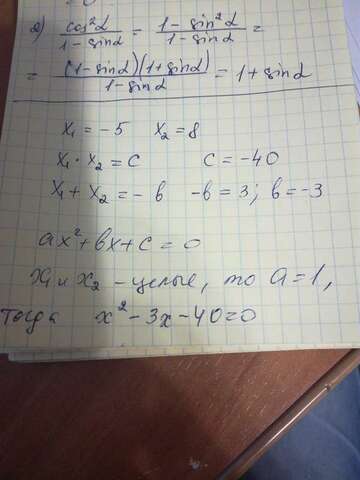 2) cos²α / (1 - sinα) = (1 - sin²α) / (1 - sinα) =
= (1 - sinα)(1 + sinα) / (1 - sinα) = 1 + sinα
x₁ = -5 x₂ = 8
x₁ · x₂ = c c = -40
x₁ + x₂ = - в -в = 3; в = -3
ax² + вx + c = 0
x₁ и x₂ - целые, то a = 1,
тогда x² - 3x - 40 = 0